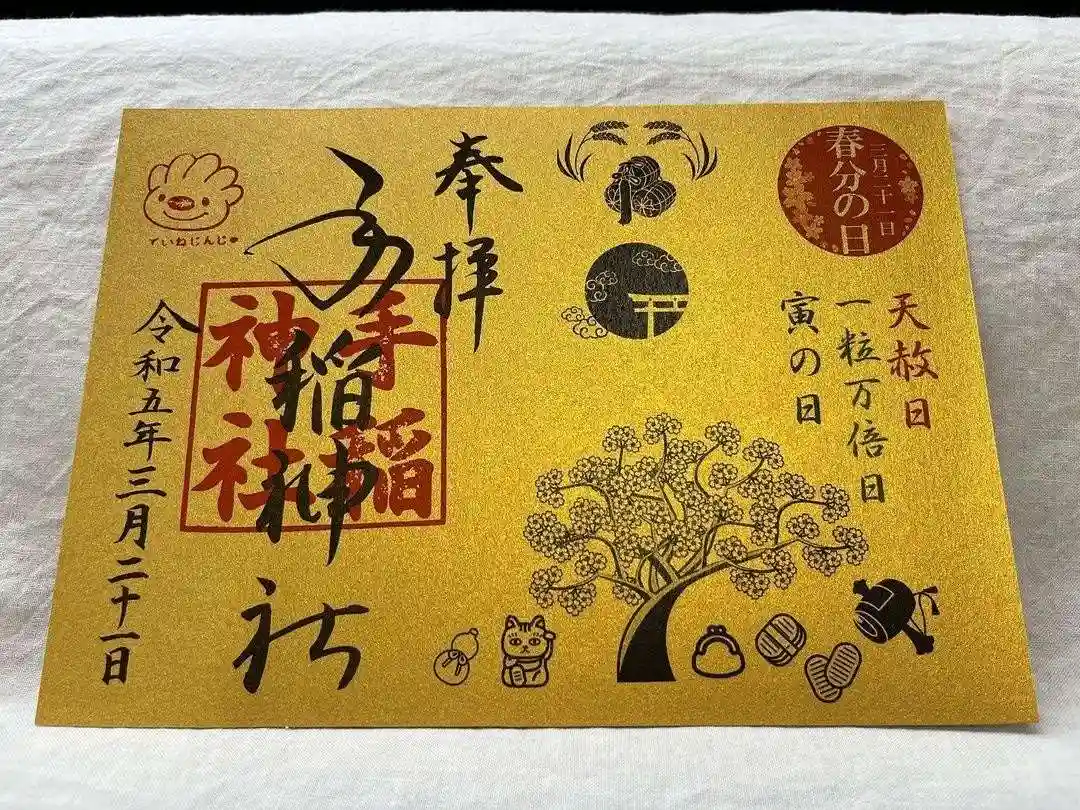 春分の日
三月二十一日
天赦日
一粒万倍日
寅の日
奉拝
手稲神社
手稲神社
令和五年三月二十一日
ていねじんじゃ